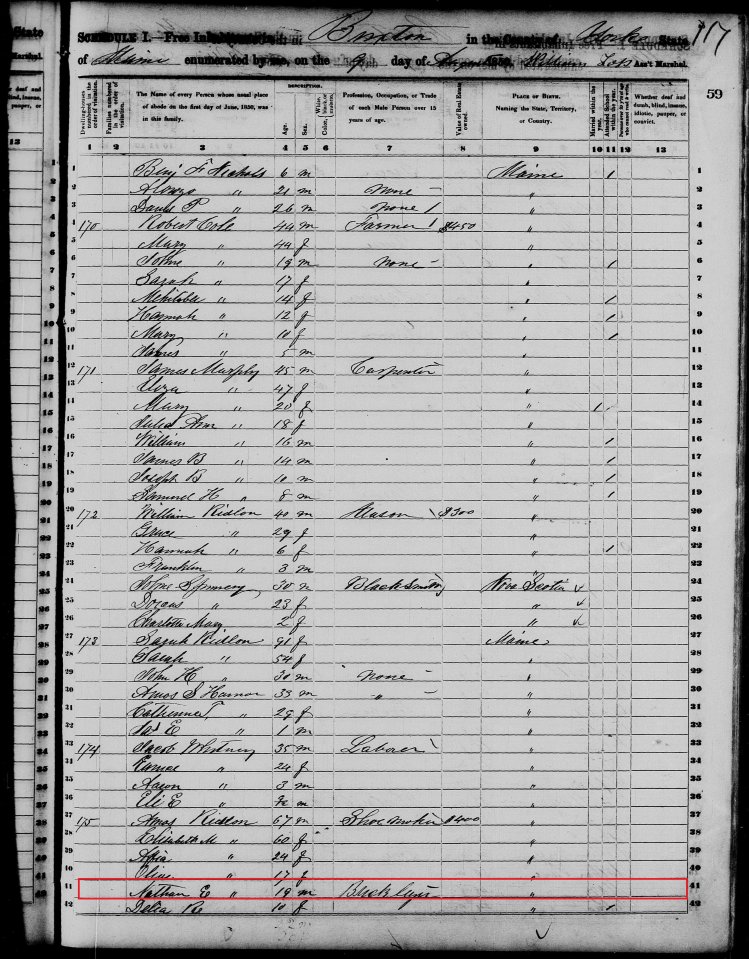 117
SCHEDULE I.—Free Inhabitants in Buxton in the County of York State
of Maine enumerated by me, on the 9 day of August 1850. William Ass't Marshal.
59
Dwelling-houses numbered in the order of visitation.
Families numbered in the order of visitation.
The Name of every Person whose usual place of abode on the first day of June, 1850, was in this family.
DESCRIPTION.
Age.
Sex.
Color,
Profession, Occupation, or Trade of each Male Person over 15 years of age.
Value of Real Estate owned.
PLACE OF BIRTH. Naming the State, Territory, or Country.
Married within the year.
Attended School within the year.
Whether deaf and dumb, blind, insane, idiotic, pauper, or convict.
1 2 3 4 5 6 7 8 9 10 11 12 13
1 Benj F Nichols 6 m Maine 1 1
2 Alonzo " 21 m none – " 2
3 P " 26 m none 1 " 3
4 170 Robert Cole 44 m Farmer 1 $450 " 4
5 Mary " 44 f " 5
6 John " 19 m none – " 1 6
7 Sarah " 17 f " 7
8 " 14 f " 1 8
9 Hannah " 12 f " 1 9
10 Mary " 10 f " 1 10
11 James " 5 m " 11
12 171 James Murphy 45 m Carpenter " 12
13 Eliza " 47 f " 13
14 Mary " 20 f " 1 14
15 Julia Ann " 18 f " 15
16 William " 16 m " 1 16
17 James B " 14 m " 1 17
18 Joseph B " 10 m " 1 18
19 Samuel H " 8 m " 1 19
20 172 William Ridlon 40 m Mason $300 " 20
21 Grace " 29 f " 21
22 Hannah " 6 f " 1 22
23 Franklin " 3 m " 23
24 John Spinney 30 m Blacksmith Nova Scotia 24
25 Dorcas " 23 f " 25
26 Charlotte Mary 2 f " 26
27 173 Sarah Ridlon 91 f Maine 27
28 Sarah " 54 f " 28
29 John H " 30 m none – " 29
30 Amos S Harmon 33 m " – " 30
31 Catherine T " 29 f " 31
32 E " 1 m " 32
33 174 Jacob Whitney 35 m Laborer " 33
34 Eunice " 24 f " 34
35 Aaron " 3 m " 35
36 Eli E " m " 36
37 175 Amos Ridlon 67 m Shoe maker $400 " 37
38 Elizabeth M " 60 f " 38
39 " 24 f " 39
40 Olive " 17 f " 40
41 Nathan E " 19 m Bricklayer " 41
42 Delia R 10 f " 1 42